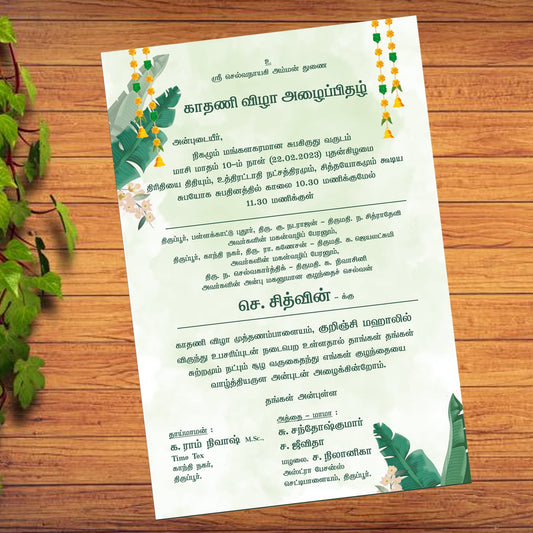 உ
ஸ்ரீ செல்வநாயகி அம்மன் துணை
காதணி விழா அழைப்பிதழ்
அன்புடையீர்,
நிகழும் மங்களகரமான சுபகிருது வருடம்
மாசி மாதம் 10-ம் நாள் (22.02.2023) புதன்கிழமை
திரிதியை திதியும், உத்திரட்டாதி நட்சத்திரமும், சித்தயோகமும் கூடிய
சுபயோக சுபதினத்தில் காலை 10.30 மணிக்குமேல்
11.30 மணிக்குள்
திருப்பூர், பள்ளக்காட்டு புதூர், திரு. கு. நடராஜன் - திருமதி. ந. சித்ராதேவி
அவர்களின் மகன்வழிப் பேரனும்,
திருப்பூர், காந்தி நகர், திரு. ரா. கணேசன் - திருமதி. க. ஜெயலட்சுமி
அவர்களின் மகள்வழிப் பேரனும்,
திரு. ந. செல்வகார்த்திக் - திருமதி. க. நிவாசினி
அவர்களின் அன்பு மகனுமான குழந்தைச் செல்வன்
செ. சித்வின் - க்கு
காதணி விழா முத்தணம்பாளையம், குறிஞ்சி மஹாலில்
விருந்து உபசரிப்புடன் நடைபெற உள்ளதால் தாங்கள் தங்கள்
சுற்றமும் நட்பும் சூழ வருகைதந்து எங்கள் குழந்தையை
வாழ்த்தியருள அன்புடன் அழைக்கின்றோம்.
தங்கள் அன்புள்ள
தாய்மாமன் :
க. ராம் நிவாஷ் M.Sc.,
Time Tex
காந்தி நகர்,
திருப்பூர்.
அத்தை - மாமா :
சு. சந்தோஷ்குமார்
ச. ஜீவிதா
மழலை. ச. நிலானிகா
அஸ்ட்ரா பேசன்ஸ்
செட்டிபாளையம், திருப்பூர்.